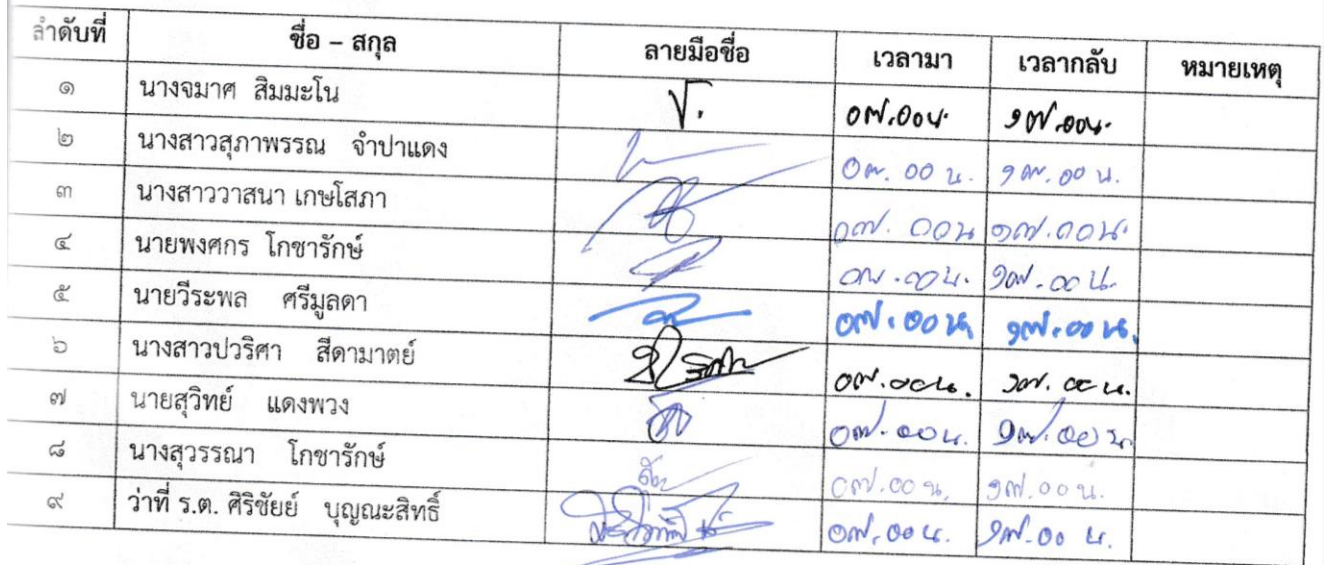 ลำดับที่ ชื่อ – สกุล ลายมือชื่อ เวลามา เวลากลับ หมายเหตุ
๑ นางจมาศ สิมมะโน ๐๗.๐๐น. ๑๗.๐๐น.
๒ นางสาวสุภาพรรณ จำปาแดง ๐๗.๐๐ น. ๑๗.๐๐ น.
๓ นางสาววาสนา เกษโสภา ๐๗.๐๐น ๑๗.๐๐น.
๔ นายพงศกร โกชารักษ์ ๐๗.๐๐น. ๑๗.๐๐น.
๕ นายวีระพล ศรีมูลดา ๐๗.๐๐น. ๑๗.๐๐น.
๖ นางสาวปวริศา สีดามาตย์ ๐๗.๐๐น. ๑๗.๐๐น.
๗ นายสุวิทย์ แดงพวง ๐๗.๐๐น. ๑๗.๐๐น.
๘ นางสุวรรณา โกชารักษ์ ๐๗.๐๐น. ๑๗.๐๐น.
๙ ว่าที่ ร.ต. ศิริชัยย์ บุญณะสิทธิ์ ๐๗.๐๐น. ๑๗.๐๐ น.